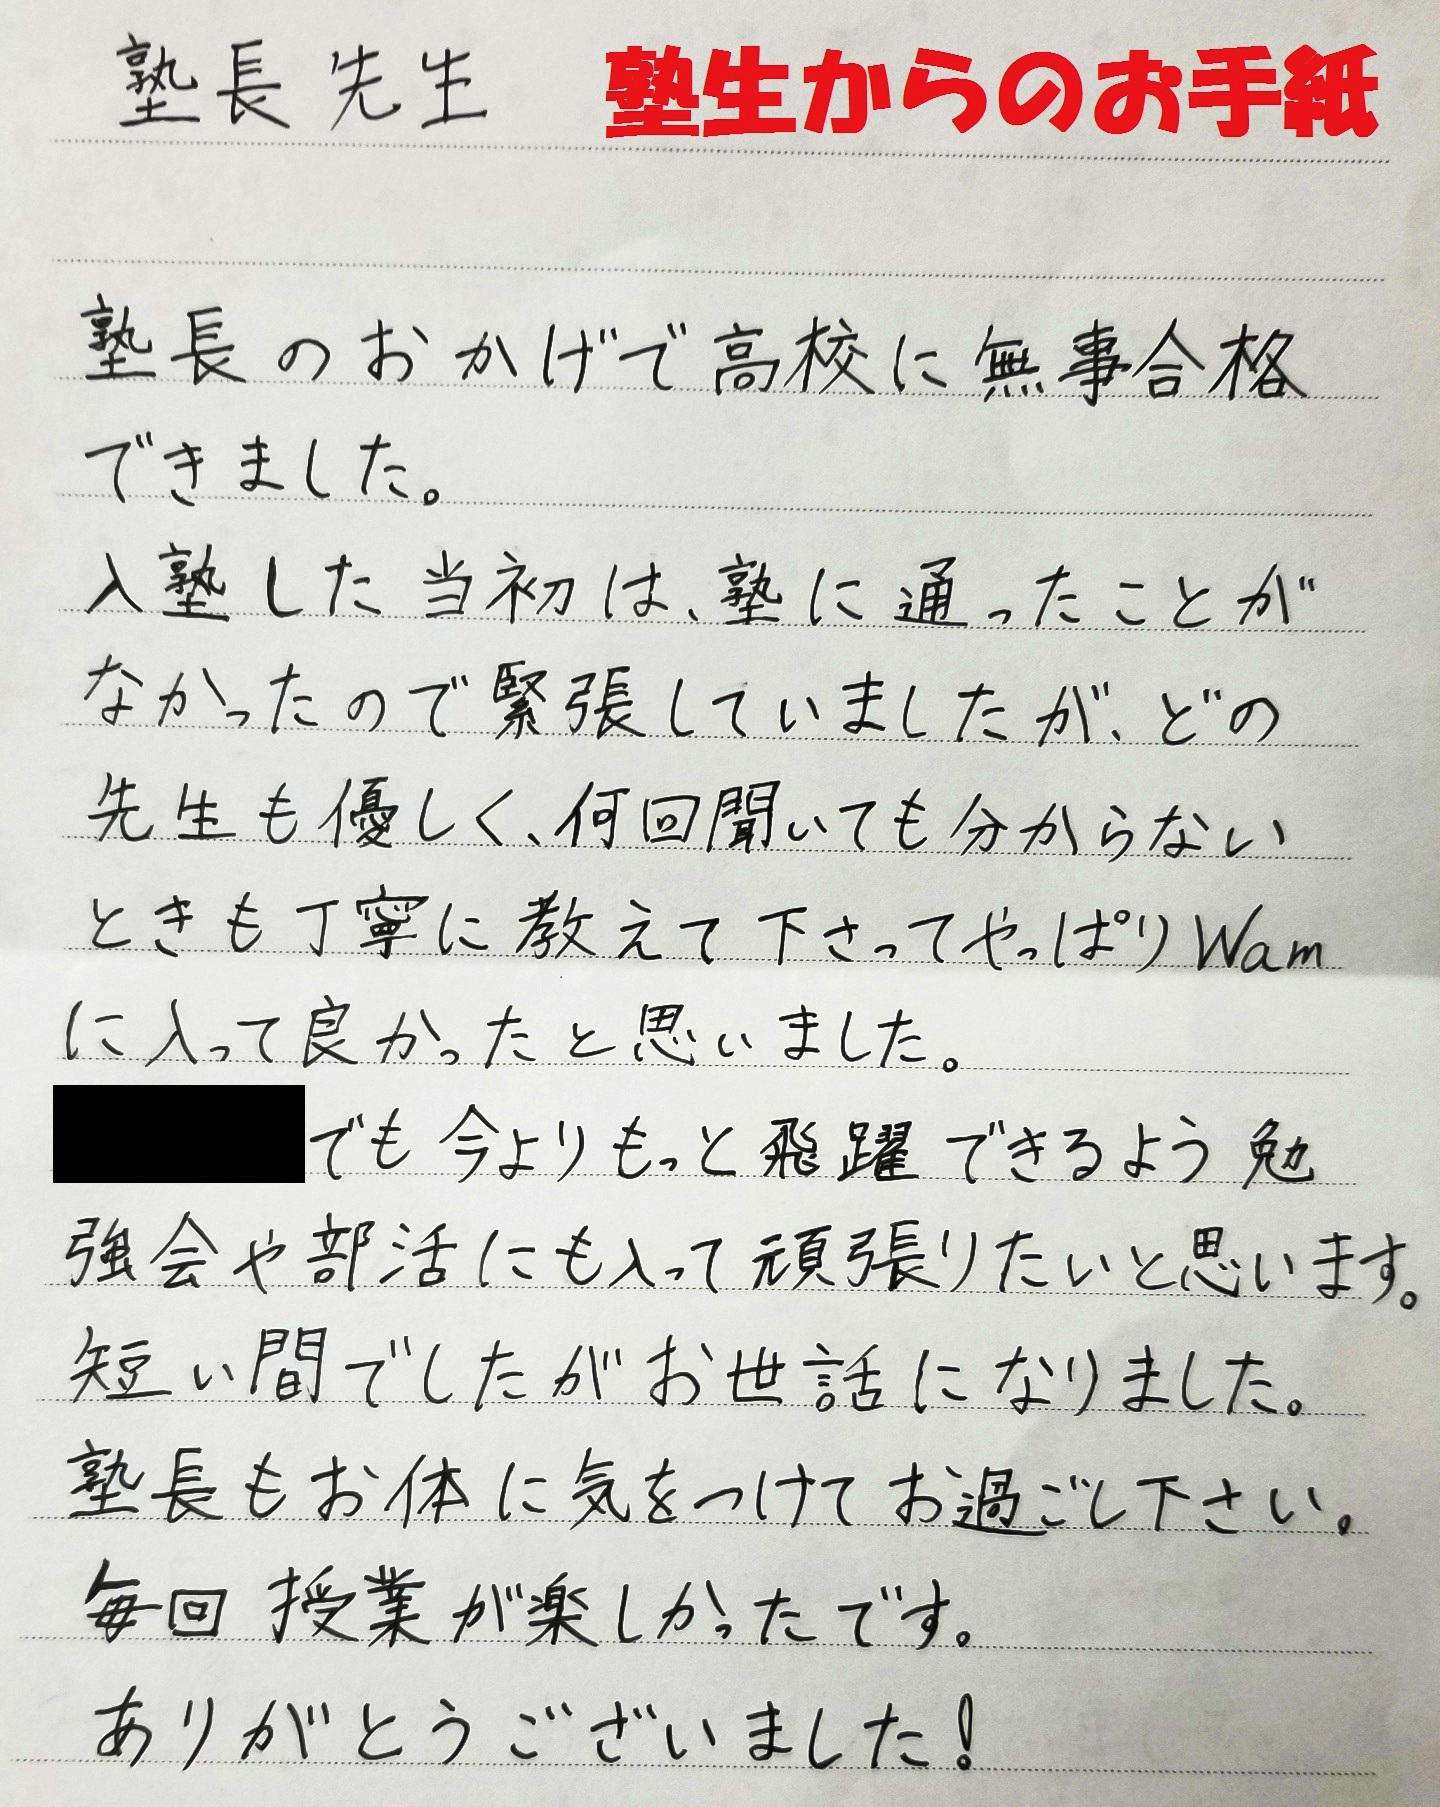 塾長先生
塾生からのお手紙
塾長のおかげで高校に無事合格
できました。
入塾した当初は、塾に通ったことが
なかったので緊張していましたが、どの
先生も優しく、何回聞いても分からない
ときも丁寧に教えて下さってやっぱりWam
に入って良かったと思いました。
でも今よりもっと飛躍できるよう勉
強会や部活にも入って頑張りたいと思います。
短い間でしたがお世話になりました。
塾長もお体に気をつけてお過ごし下さい。
毎回授業が楽しかったです。
ありがとうございました!